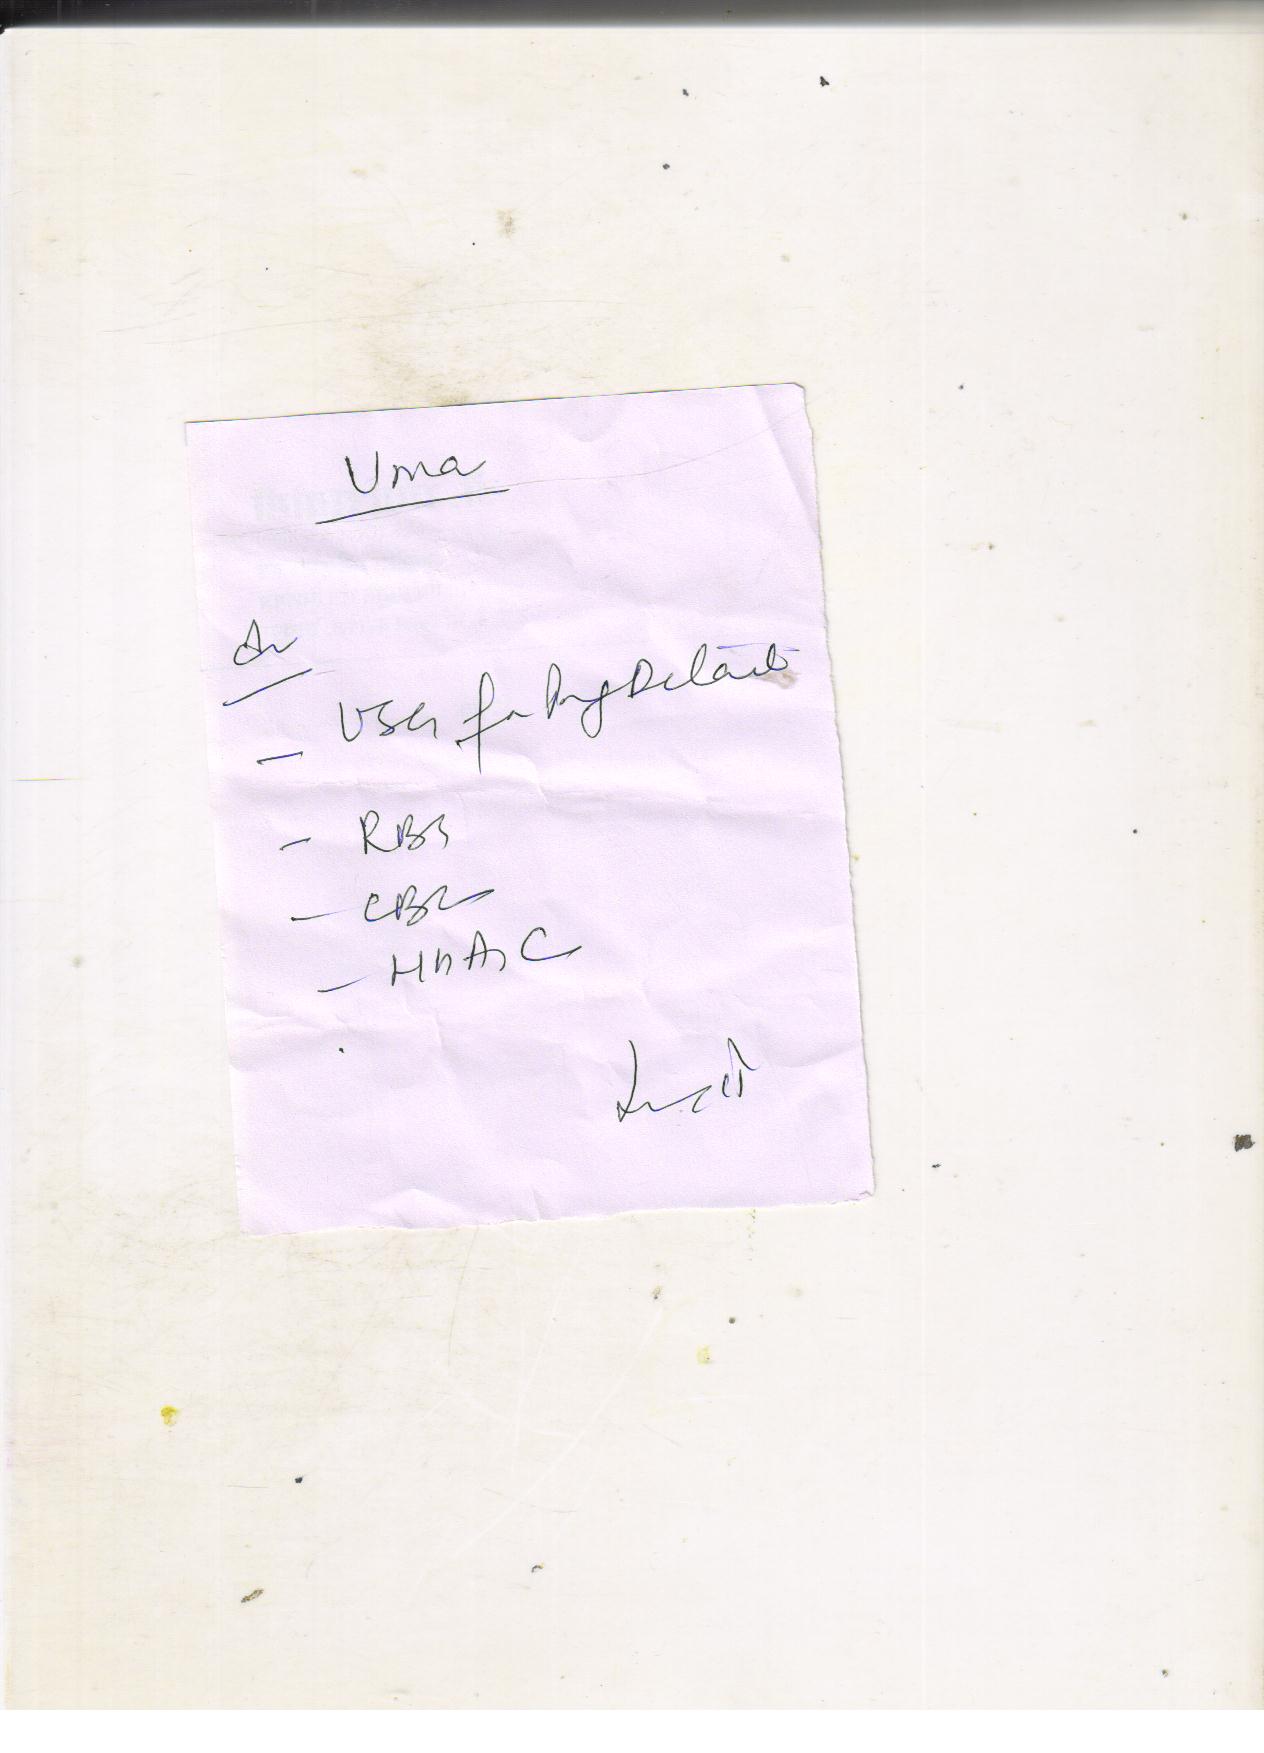 Uma
Adv
- USG for Preg Details
- RBS
- CBC
- HbA1C